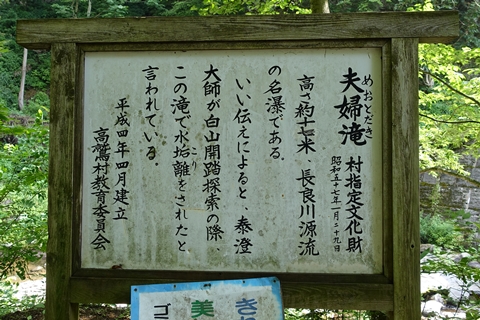 めおとだき
夫婦滝
村指定文化財
昭和五十七年一月二十九日
高さ約十七米、長良川源流
の名瀑である。
いい伝えによると、泰澄
大師が白山開踏探索の際、
この滝で水垢離をされたと
こり
言われている。
平成四年四月建立
高鷲村教育委員会
美
ゴミ